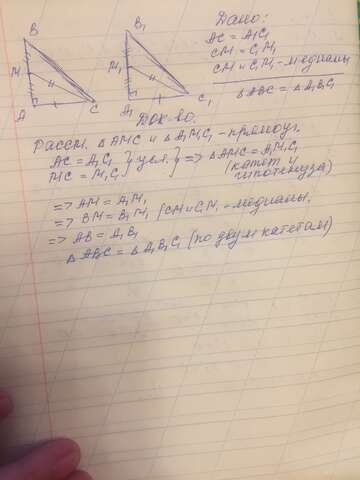 B
M
A
C
B₁
M₁
A₁
C₁
Дано:
AC = A₁C₁
CM = C₁M₁
CM и C₁M₁ - медианы
△ABC = △A₁B₁C₁
Док-во.
Рассм. △AMC и △A₁M₁C₁ - прямоуг.
AC = A₁C₁ } усл. } => △AMC = A₁M₁C₁
MC = M₁C₁
(катет и
гипотенуза)
=> AM = A₁M₁
=> BM = B₁M₁ (CM и C₁M₁ - медианы,
=> AB = A₁B₁
△ABC = △A₁B₁C₁ (по двум катетам)